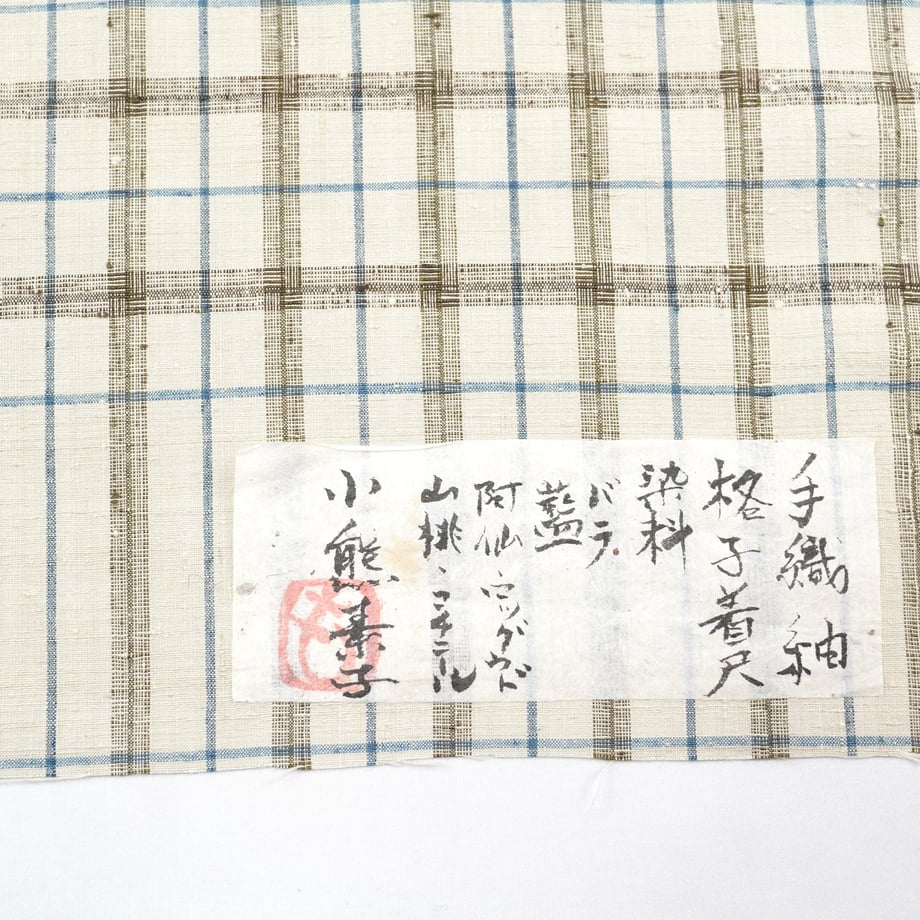 手織紬
格子着尺
染料
バラ
藍
阿仙、ロッグウッド
山桃、コチニール
小熊素子